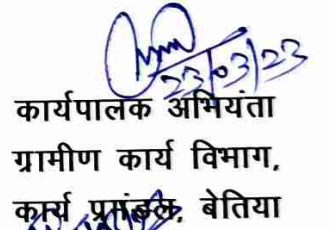 23/03/23
कार्यपालक अभियंता
ग्रामीण कार्य विभाग,
कार्य प्रमंडल, बेतिया